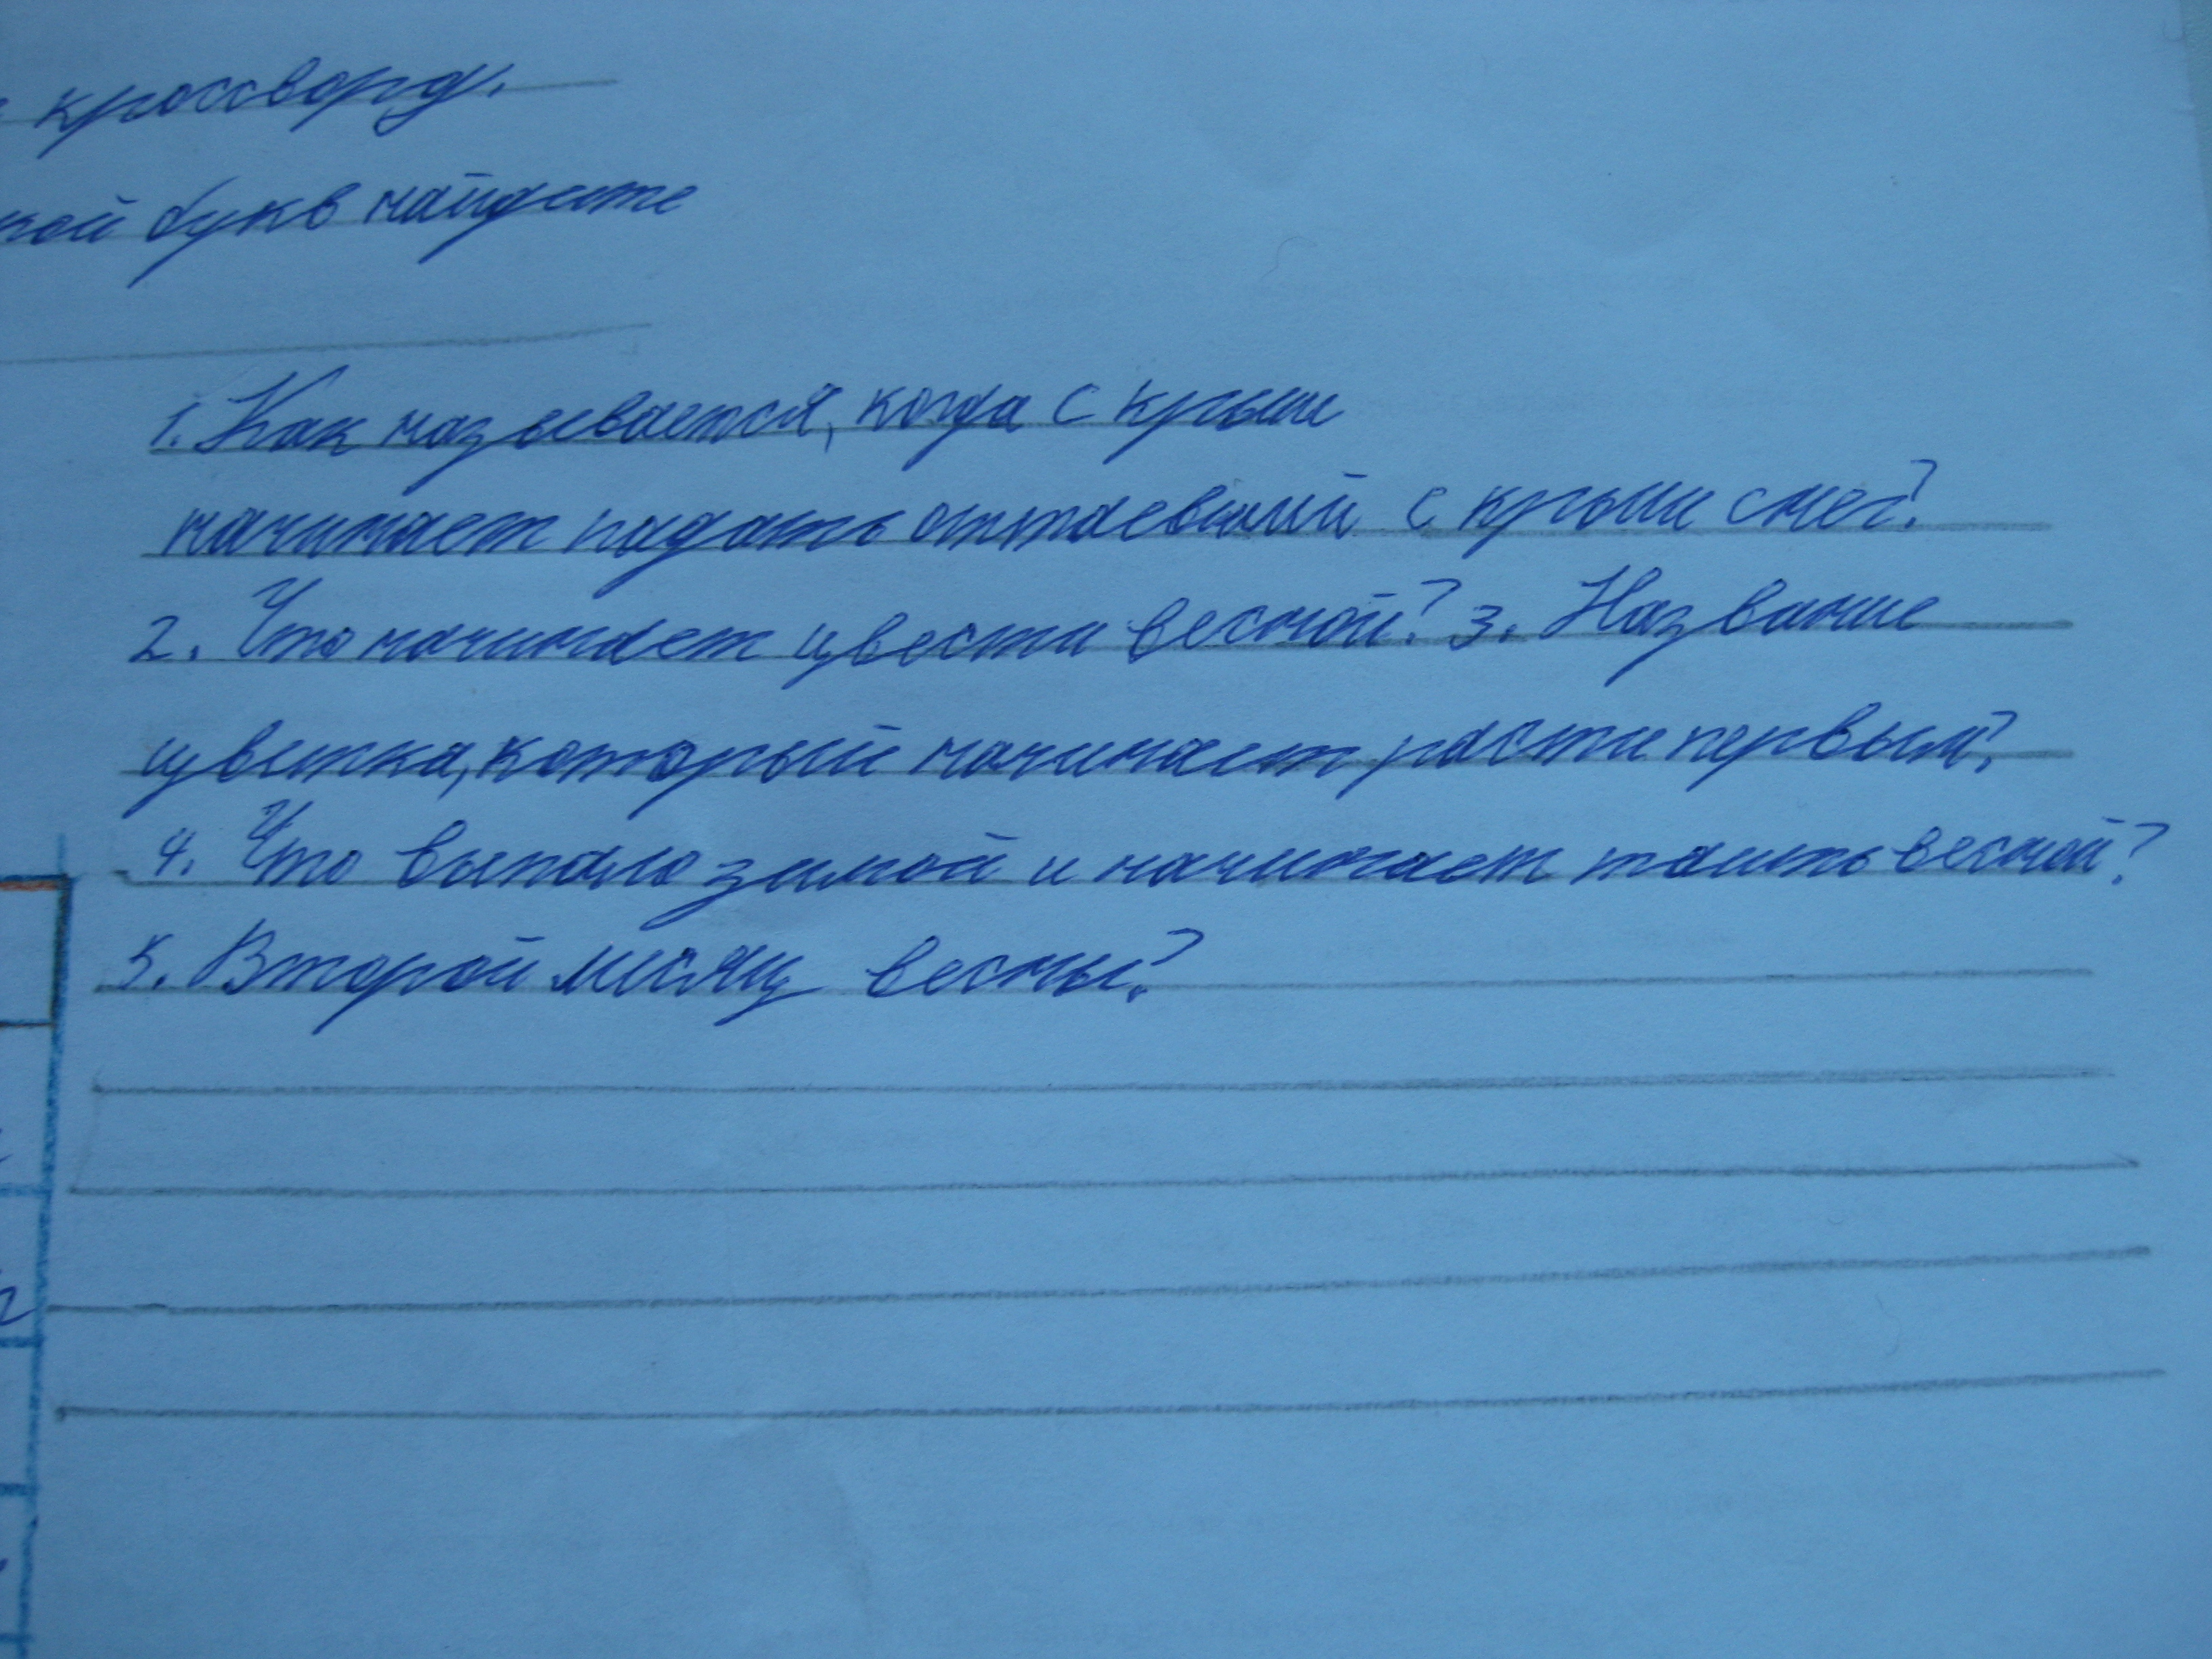 кроссворд.
кой букв найдите
1. Как называется, когда с крыши
начинает падать оттаевший с крыши снег?
2. Что начинает цвести весной? 3. Название
цветка, который начинает расти первым?
4. Что выпало зимой и начинает таить весной?
5. Второй месяц весны?